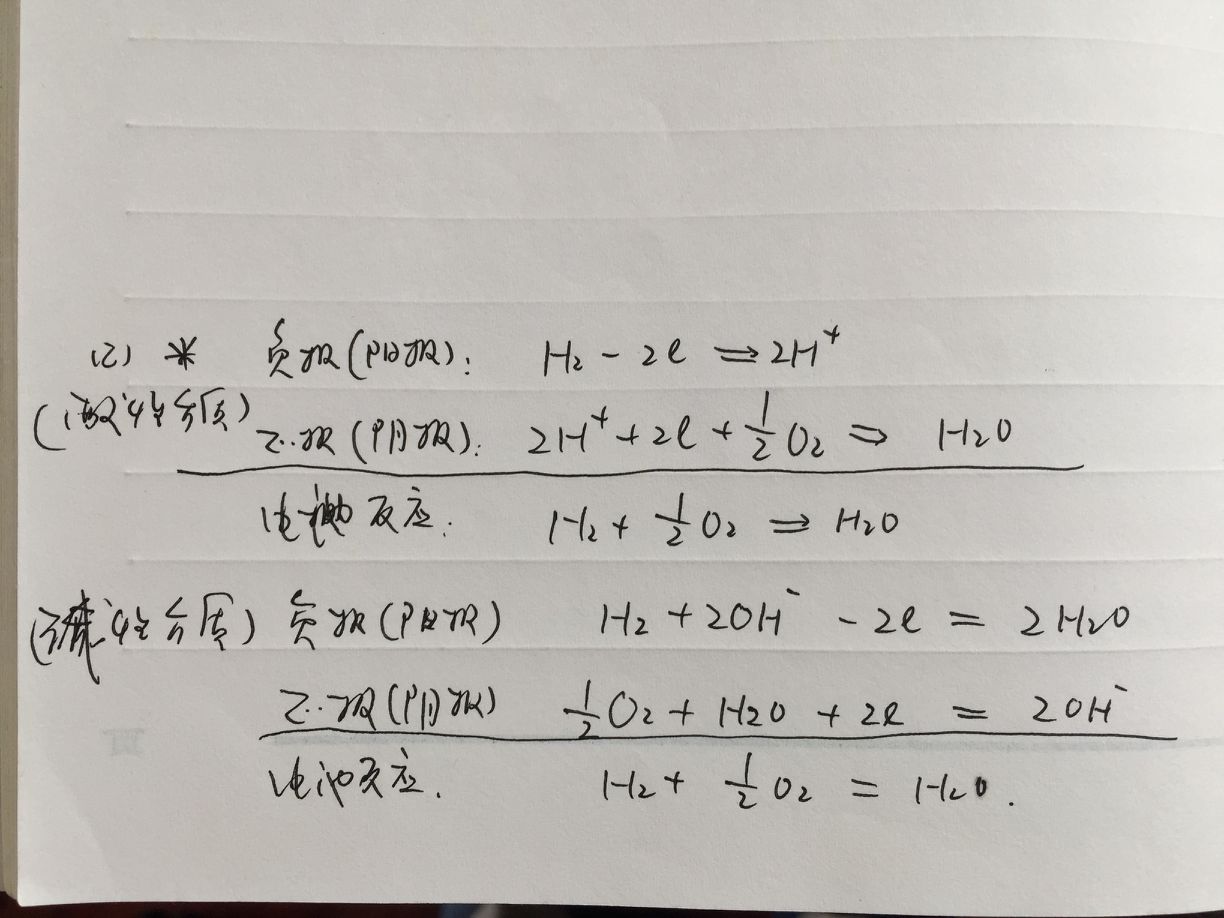 (2) * 负极(阳极): H₂ - 2e ⇒ 2H⁺
(酸性介质) 正极(阴极): 2H⁺ + 2e + ½O₂ ⇒ H₂O
电池反应: H₂ + ½O₂ ⇒ H₂O
(碱性介质) 负极(阳极) H₂ + 2OH⁻ - 2e = 2H₂O
正极(阴极) ½O₂ + H₂O + 2e = 2OH⁻
电池反应. H₂ + ½O₂ = H₂O.